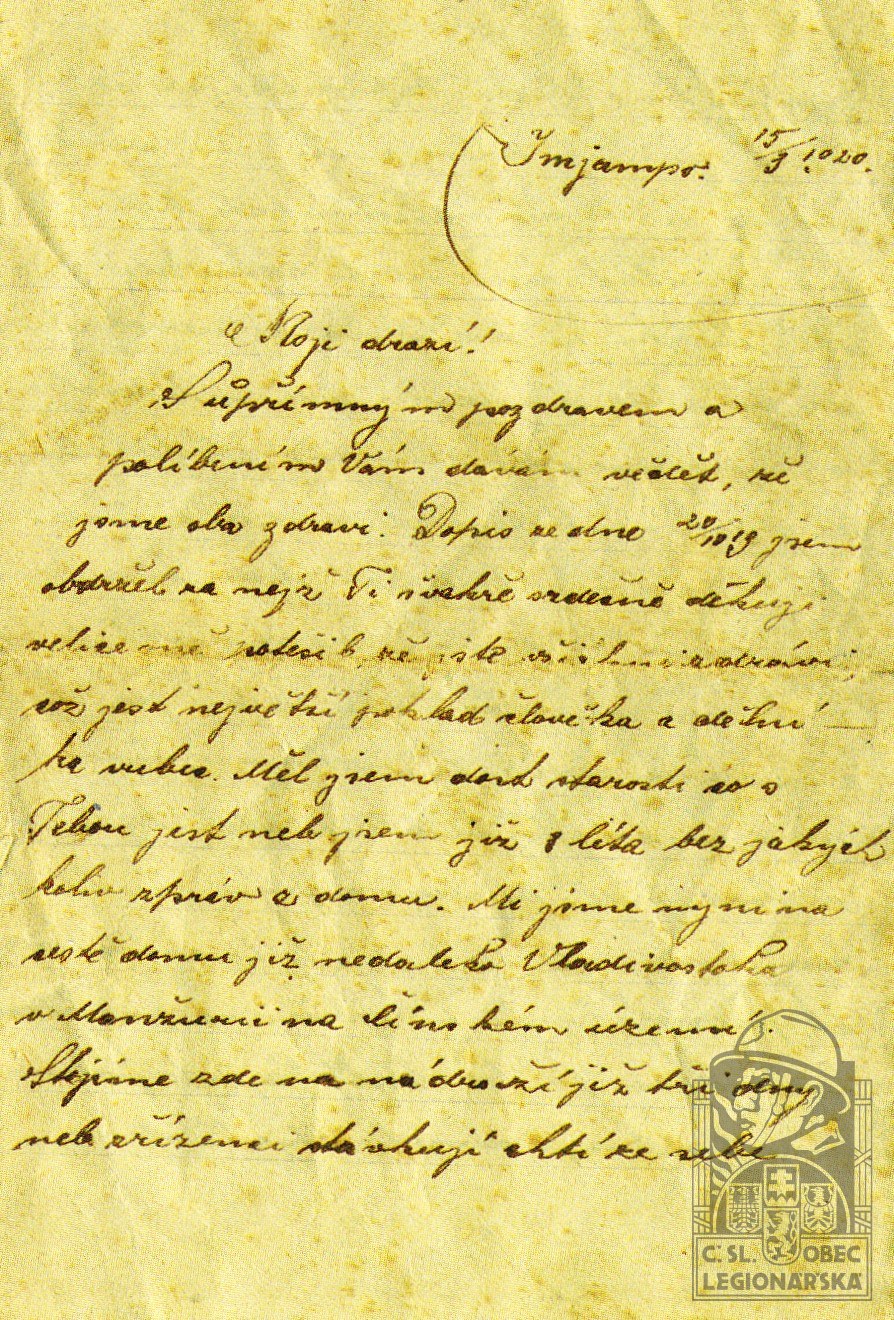 Imjampo. 15/3 1920.
Moji drazí!
S upřímným pozdravem a
políbením Vám dávám vědět, že
jsme oba zdravi. Dopis ze dne 20/10 19 jsem
obdržel za nejž Ti švakře srdečně děkuji
velice mě potěšil, že jste všichni zdrávi,
což jest největší poklad člověka a dělní-
ka vubec. Měl jsem dost starosti co s
Tebou jest neb jsem již líta bez jakých
koliv zpráv z domu. Mi jsme nyni na
cestě domu již nedaleko Vladivostoka
v Manžurii na čínském území.
Stojíme zde na nádraží již tři dny
neb zřízenci stávkují chtí ze sebe
Č. SL. OBEC
LEGIONÁŘSKÁ